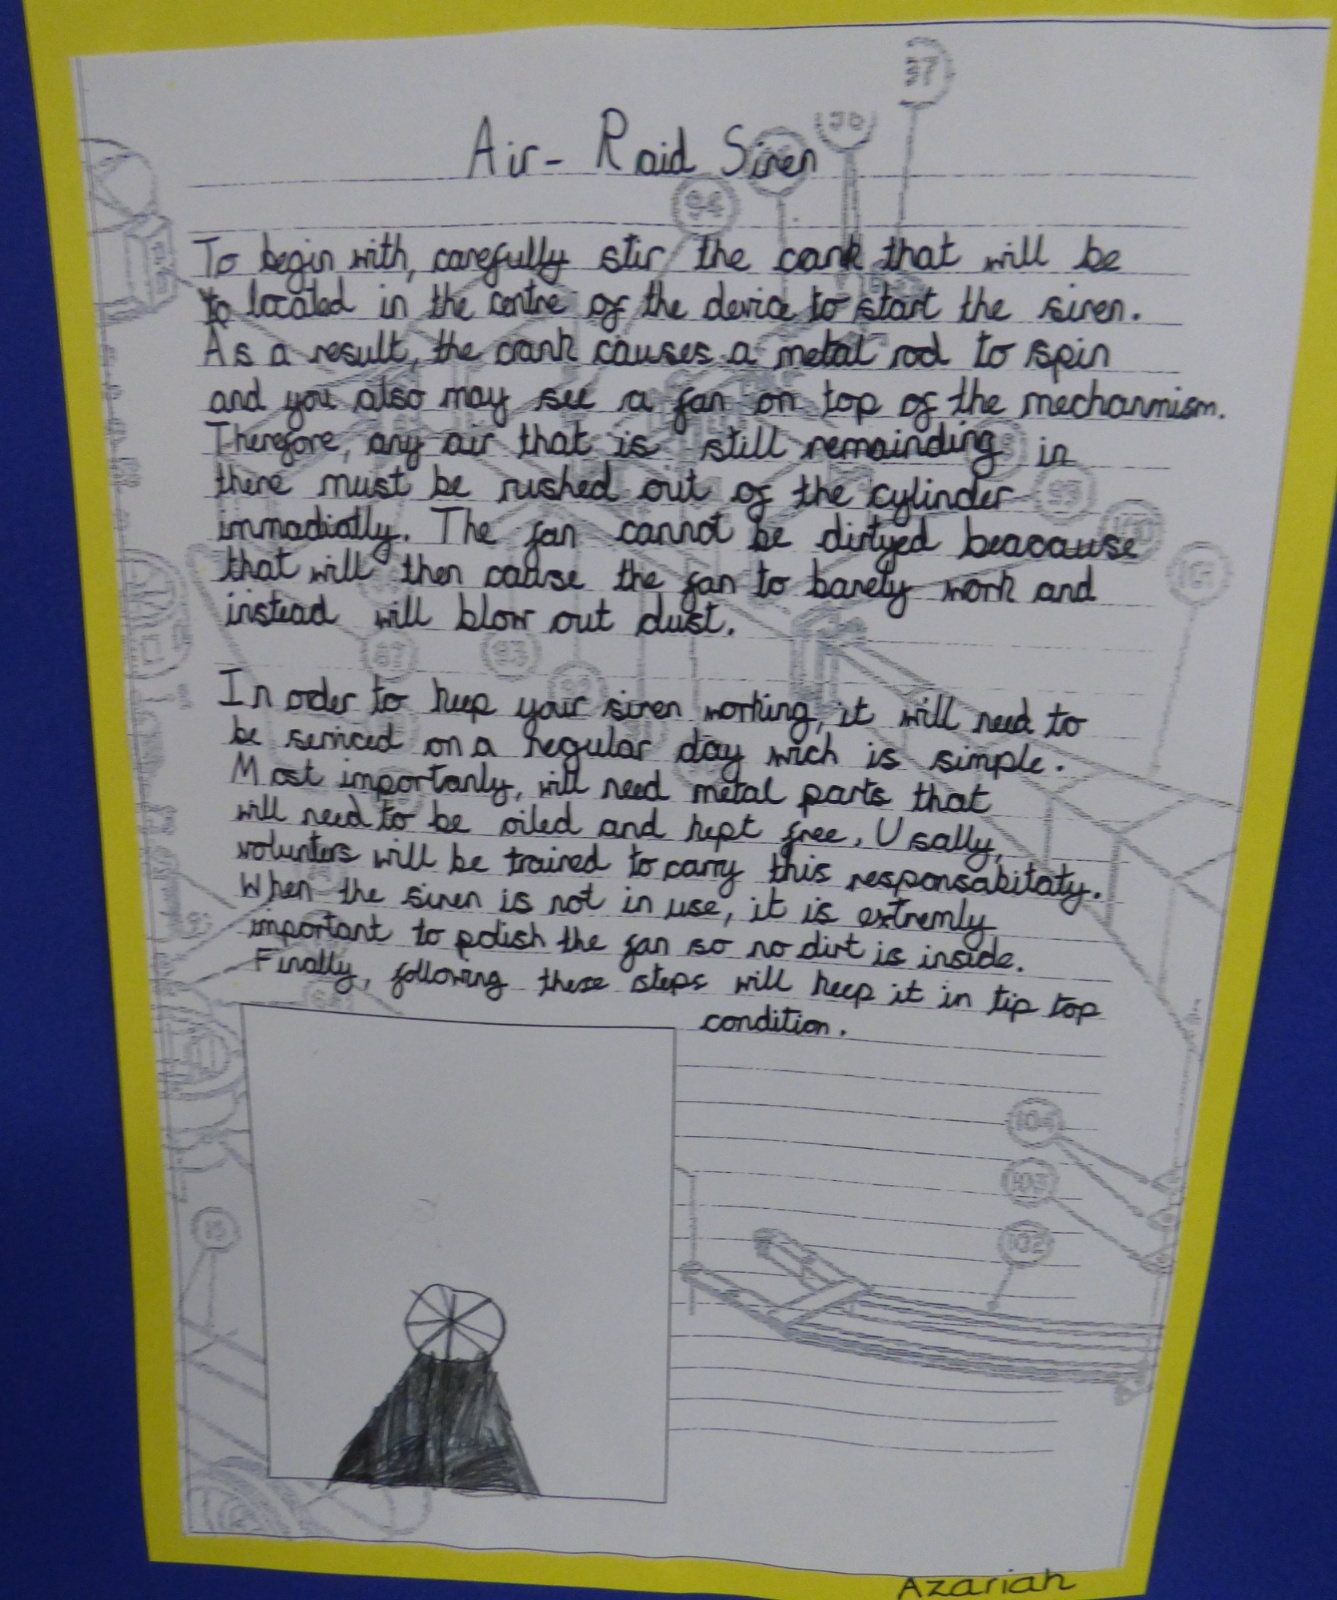 37
96
Air-Raid Siren
94
To begin with, carefully stir the cank that will be
to located in the centre of the device to start the siren.
As a result, the crank causes a metal rod to spin
and you also may see a fan on top of the mechanmism.
Therefore, any air that is still remainding in
there must be rushed out of the cylinder
99
immadiatly. The fan cannot be dirtyed beacause
100
that will then cause the fan to barely work and
101
instead will blow out dust.
93
In order to keep your siren working, it will need to
be serviced on a regular day wich is simple.
Most importanly, will need metal parts that
will need to be oiled and kept free, Usally,
volunters will be trained to carry this responsabitaty.
When the siren is not in use, it is extremly
important to polish the fan so no dirt is inside.
Finally, following these steps will keep it in tip top
condition.
104
103
102
15
Azariah